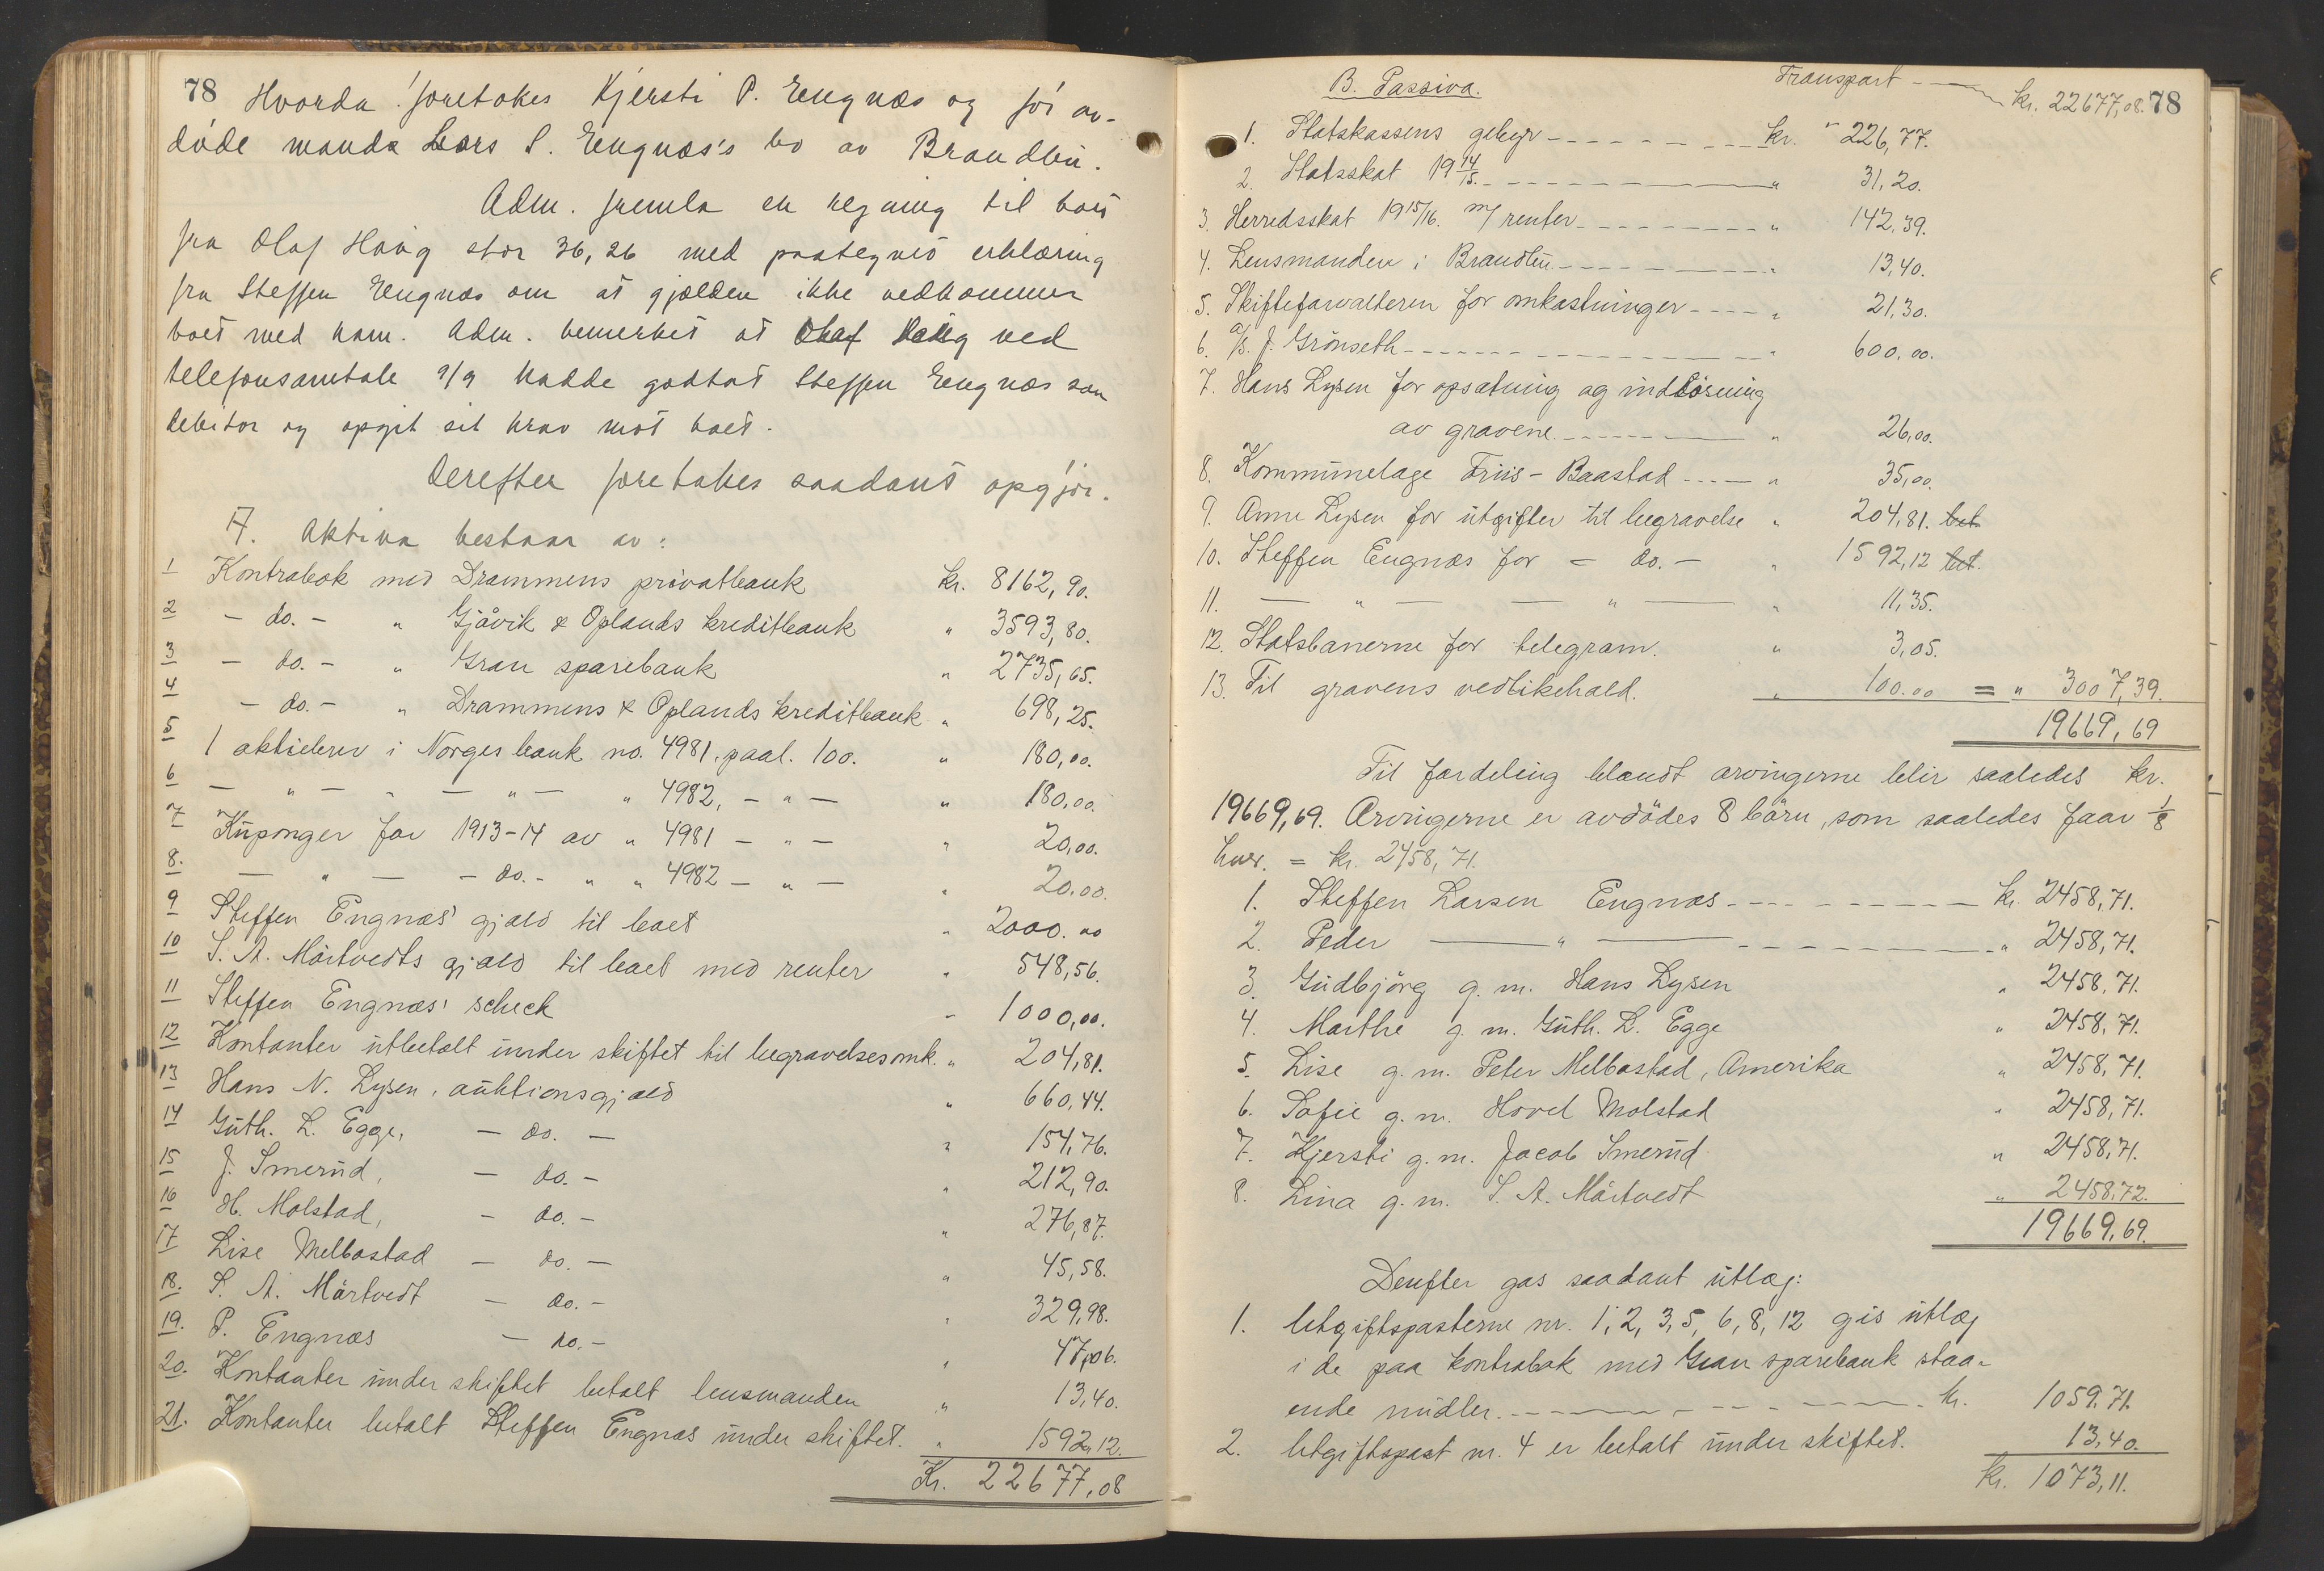 78 Hvorda foretokes Kjersti P. Engnæs og før av-
døde mands Lars S. Engnæs's bo av Brandbu.
Adm. fremla en regning til boet
fra Olaf Haug stor 36,26 med paategnet erklæring
fra Steffen Engnæs om at gjælden ikke vedkommer
boet med ham. Adm. bemerket at Olaf Haug ved
telefonsamtale 9/9 hadde godtat Steffen Engnæs som
debitor og opgit sit krav mot boet.
Derefter foretokes saadant opgjør.
A. Aktiva bestaar av:
1 Kontrabok med Drammens privatbank kr. 8162,90.
2 - do. - " Gjøvik & Oplands kreditbank " 3593,80.
3 - do. - " Gran sparebank " 2735,65.
4 - do. - " Drammens & Oplands kreditbank " 698,25.
5 1 aktiebrev i Norges bank no. 4981. paal. 100. " 180,00.
6 - " - " - " - " 4982, - " - " 180,00.
7 Kuponger for 1913-14 av " 4981 - " - " 20,00.
8. - " - - do. - " " 4982 - " - " 20.00.
9 Steffen Engnæs' gjæld til boet " 2000.00
10 S. A. Mörtvedts gjæld til boet med renter " 548,56.
11 Steffen Engnæs' scheck " 1000,00.
12 Kontanter utbetalt under skiftet til begravelsesomk. " 204,81.
13 Hans N. Lysen, auktionsgjæld " 660,44.
14 Guth. L. Egge, - do. - " 154,76.
15 J. Smerud, - do. - " 212,90.
16 H. Molstad, - do. - " 276,87.
17 Lise Melbostad - do. - " 45,58.
18. S. A. Mörtvedt - do. - " 329,98.
19. P. Engnæs - do. - " 47,06.
20. Kontanter under skiftet betalt lensmanden " 13,40.
21. Kontanter betalt Steffen Engnæs under skiftet. " 1592,12.
Kr. 22677,08
B. Passiva. Transport - kr. 22677,08. 78
1. Statskassens gebyr - kr. 226,77.
2. Statsskat 19 14/15. - " 31,20.
3. Herredsskat 1915/16. m/ renter - " 142,39.
4. Lensmanden i Brandbu - " 13,40.
5. Skifteforvalteren for omkostninger - " 21,30.
6. A/S. J. Grönseth - " 600,00.
7. Hans Lysen for opsætning og
av gravene. - " 26,00.
8. Kommunelæge Friis-Baastad - " 35,00.
9. Anne Lysen for utgifter til begravelse " 204,81. bet.
10. Steffen Engnæs for - do. - " 1592,12 bet.
11. - " - - " - " 11,35.
12. Statsbanerne for telegram. " 3,05.
13. Til gravens vedlikehold. " 100.00 = " 3007,39.
19669,69
Til fordeling blandt arvingerne blir saaledes kr.
19669,69. Arvingerne er avdödes 8 börn, som saaledes faar 1/8
hver. = kr. 2458,71.
1. Steffen Larsen Engnæs - kr. 2458,71.
2. Peder - " - " 2458,71.
3. Gudbjörg g. m. Hans Lysen " 2458,71.
4. Marthe g. m. Guth. L. Egge " 2458,71.
5. Lise g. m. Peter Melbostad, Amerika " 2458,71.
6. Sofie g. m. Hovel Molstad " 2458,71.
7. Kjersti g. m. Jacob Smerud " 2458,71.
8. Lina g. m. S. A. Mörtvedt " 2458,72.
19669,69.
Derefter gas saadant utlæg:
1. Utgiftsposterne nr. 1, 2, 3, 5, 6, 8, 12 gis utlæg
i de paa kontrabok med Gran sparebank staa-
ende midler. - kr. 1059.71.
2. Utgiftspost nr. 4 er betalt under skiftet. 13,40.
Kr. 1073,11.